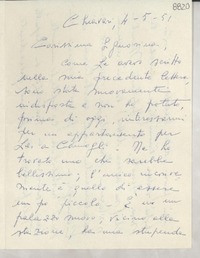 8820
Chiavari, 4-5-51
Carissima Signorina,
come Le avevo scritto
nella mia precedente lettera,
sono stata nuovamente
indisposta e non ho potuto,
prima di oggi, interessarmi
per un appartamento per
Lei a . Ne ho
trovato uno che sembra
bellissimo; l'unico inconve
niente è quello di essere
un po' piccolo. È in un
palazzo nuovo, vicino alla
stazione, ha una stupenda